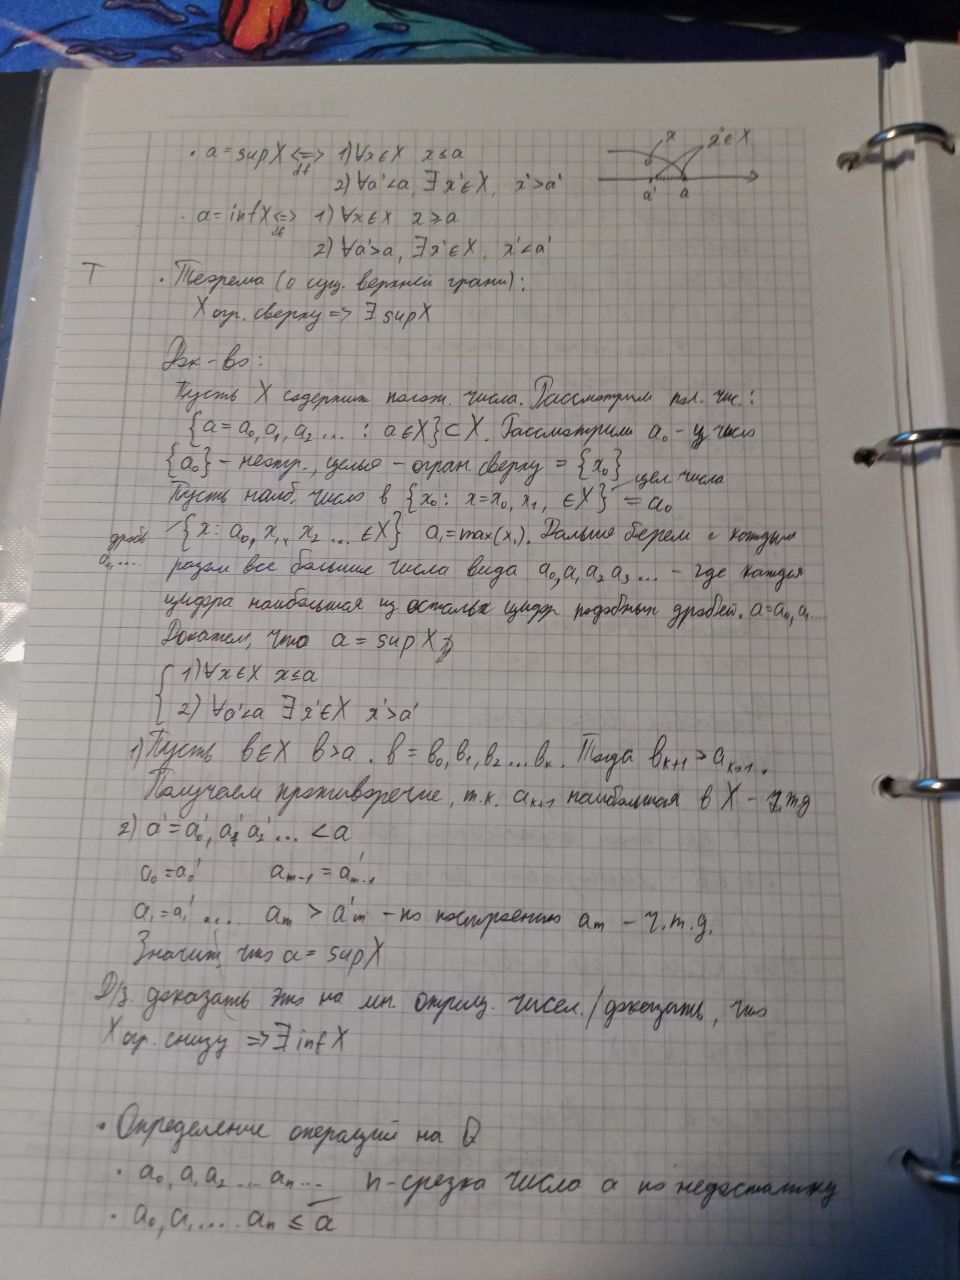 · a = supX <=> 1) ∀x∈X x ≤ a
df
2) ∀a'<a, ∃x'∈X, x'>a'
x x'∈X
a' a
· a = infX <=> 1) ∀x∈X x ≥ a
df
2) ∀a'>a, ∃x'∈X, x'<a'
T · Теорема (о сущ. верхней грани):
X огр. сверху => ∃ supX
Док-во:
Пусть X содержит полож. числа. Рассмотрим пол. чис.:
{a = a₀, a₁, a₂ ... : a∈X} ⊂ X. Рассмотрим a₀ -
{a₀} - , целые - огран. сверху = {x₀}
цел. числа
Пусть наиб. число в {x₀: x = x₀, x₁, ∈X} = a₀
дробь
a₀,....
{x: a₀, x₁, x₂ ... ∈X} a₁ = max(x₁). Дальше берем с каждым
разом все большие числа вида a₀, a₁ a₂ a₃ ... - где каждая
цифра наибольшая из остальн цифр подобных дробей. a = a₀, a₁....
Докажем, что a = supX
1) ∀x∈X x ≤ a
2) ∀a'<a ∃x'∈X x'>a'
1) Пусть b∈X b>a. b = b₀, b₁, b₂ ... bₖ. Тогда bₖ₊₁ > aₖ₊₁.
Получаем противоречие, т.к. aₖ₊₁ наибольшая в X - ч.т.д
2) a' = a₀', a₁' a₂' ... < a
a₀ = a₀' aₘ₋₁ = a'ₘ₋₁
a₁ = a₁' ... aₘ > a'ₘ - по построению aₘ - ч.т.д.
Значит, что a = supX
Д/з. доказать это на мн. отриц. чисел. / доказать, что
X огр. снизу => ∃ infX
· Определение операций на Q
· a₀, a₁ a₂ ... aₙ ... n-срезка число a по недостатку
· a₀, a₁ .... aₙ ≤ a